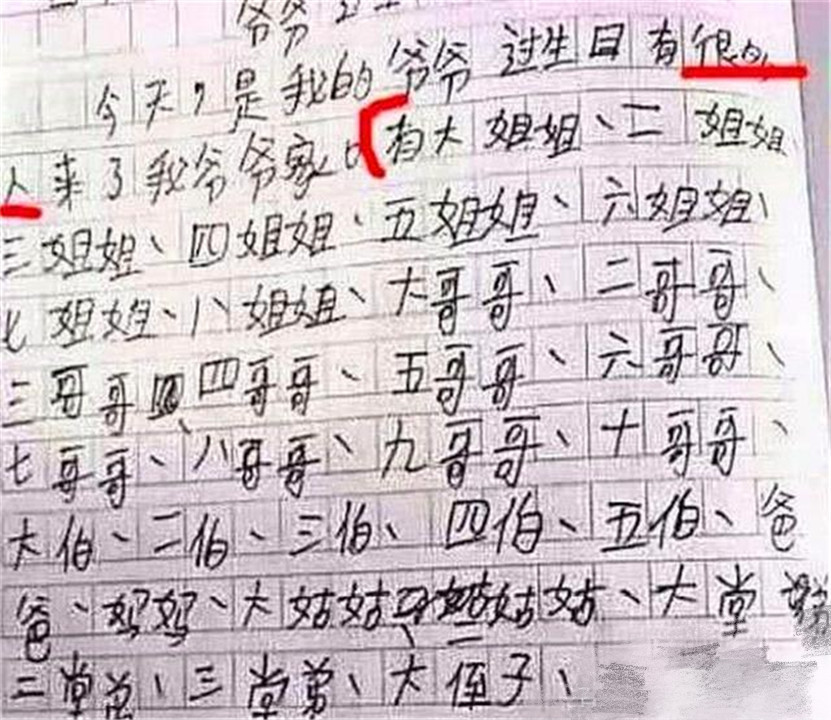 爷爷过生
今天,是我的爷爷过生日有很的
人来了我爷爷家。有大姐姐、二姐姐
三姐姐、四姐姐、五姐姐、六姐姐、
七姐姐、八姐姐、大哥哥、二哥哥、
三哥哥、四哥哥、五哥哥、六哥哥、
七哥哥、八哥哥、九哥哥、十哥哥、
大伯、二伯、三伯、四伯、五伯、爸
爸、妈妈、大姑姑、二姑姑、大堂弟
二堂弟、三堂弟、大侄子、